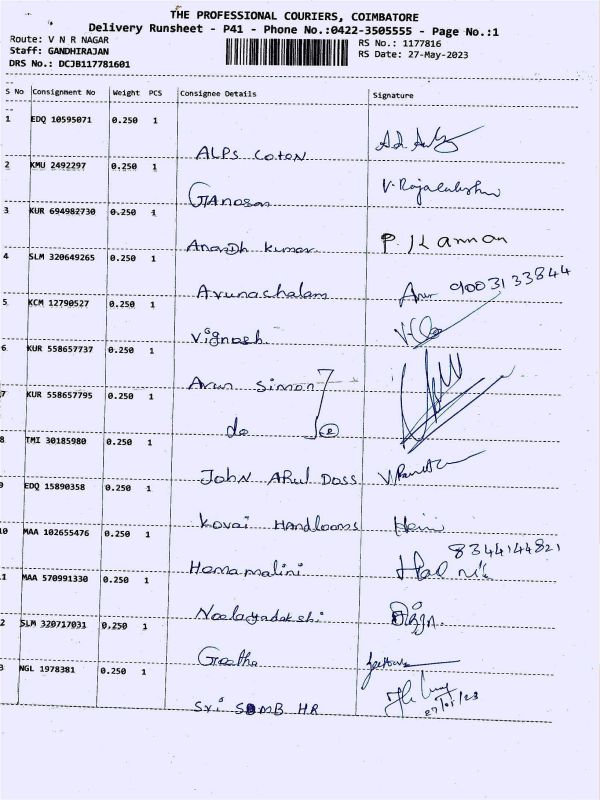 THE PROFESSIONAL COURIERS, COIMBATORE
Delivery Runsheet - P41 - Phone No.:0422-3505555 - Page No.:1
Route: V N R NAGAR RS No.: 1177816
Staff: GANDHIRAJAN RS Date: 27-May-2023
DRS No.: DCJB117781601
S No Consignment No Weight PCS Consignee Details Signature
1 EDQ 10595071 0.250 1
ALPS COTON
2 KMU 2492297 0.250 1
GANesan V. Rajalakshmi
3 KUR 694982730 0.250 1
Anandh kumar P. Kannan
4 SLM 320649265 0.250 1
Arunachalam 9003133844
5 KCM 12790527 0.250 1
Vignesh
6 KUR 558657737 0.250 1
Arun Simon
7 KUR 558657795 0.250 1
do 2
8 TMI 30185980 0.250 1
JOHN ARul DOSS
9 EDQ 15890358 0.250 1
Kovai HANDLOOMS
10 MAA 102655476 0.250 1
8344144821
Hemamalini
1 MAA 570991330 0.250 1
Neelayadakshi
2 SLM 320717031 0.250 1
Geetha
3 NGL 1978381 0.250 1
Sri HR
27/05/23